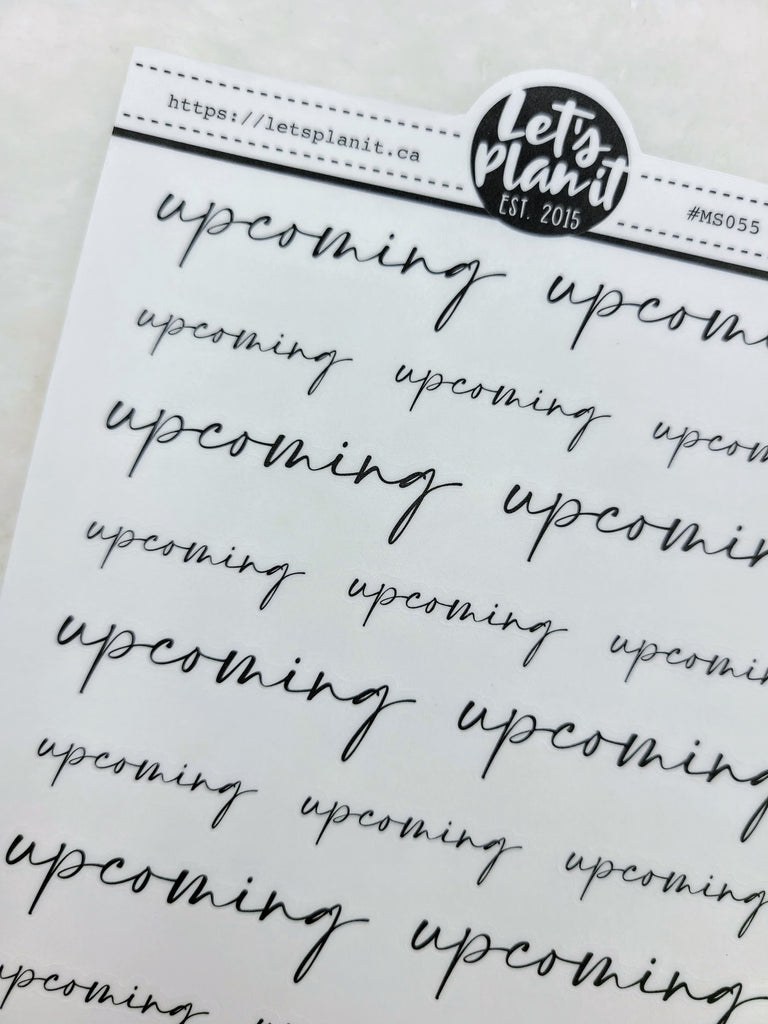 https://letsplanit.ca
Let's
plan it
EST. 2015
#MS055
upcoming upcom
upcoming upcoming upcom
upcoming upcomin
upcoming upcoming upcomin
upcoming upcoming
upcoming upcoming upcoming
upcoming upcoming
upcoming